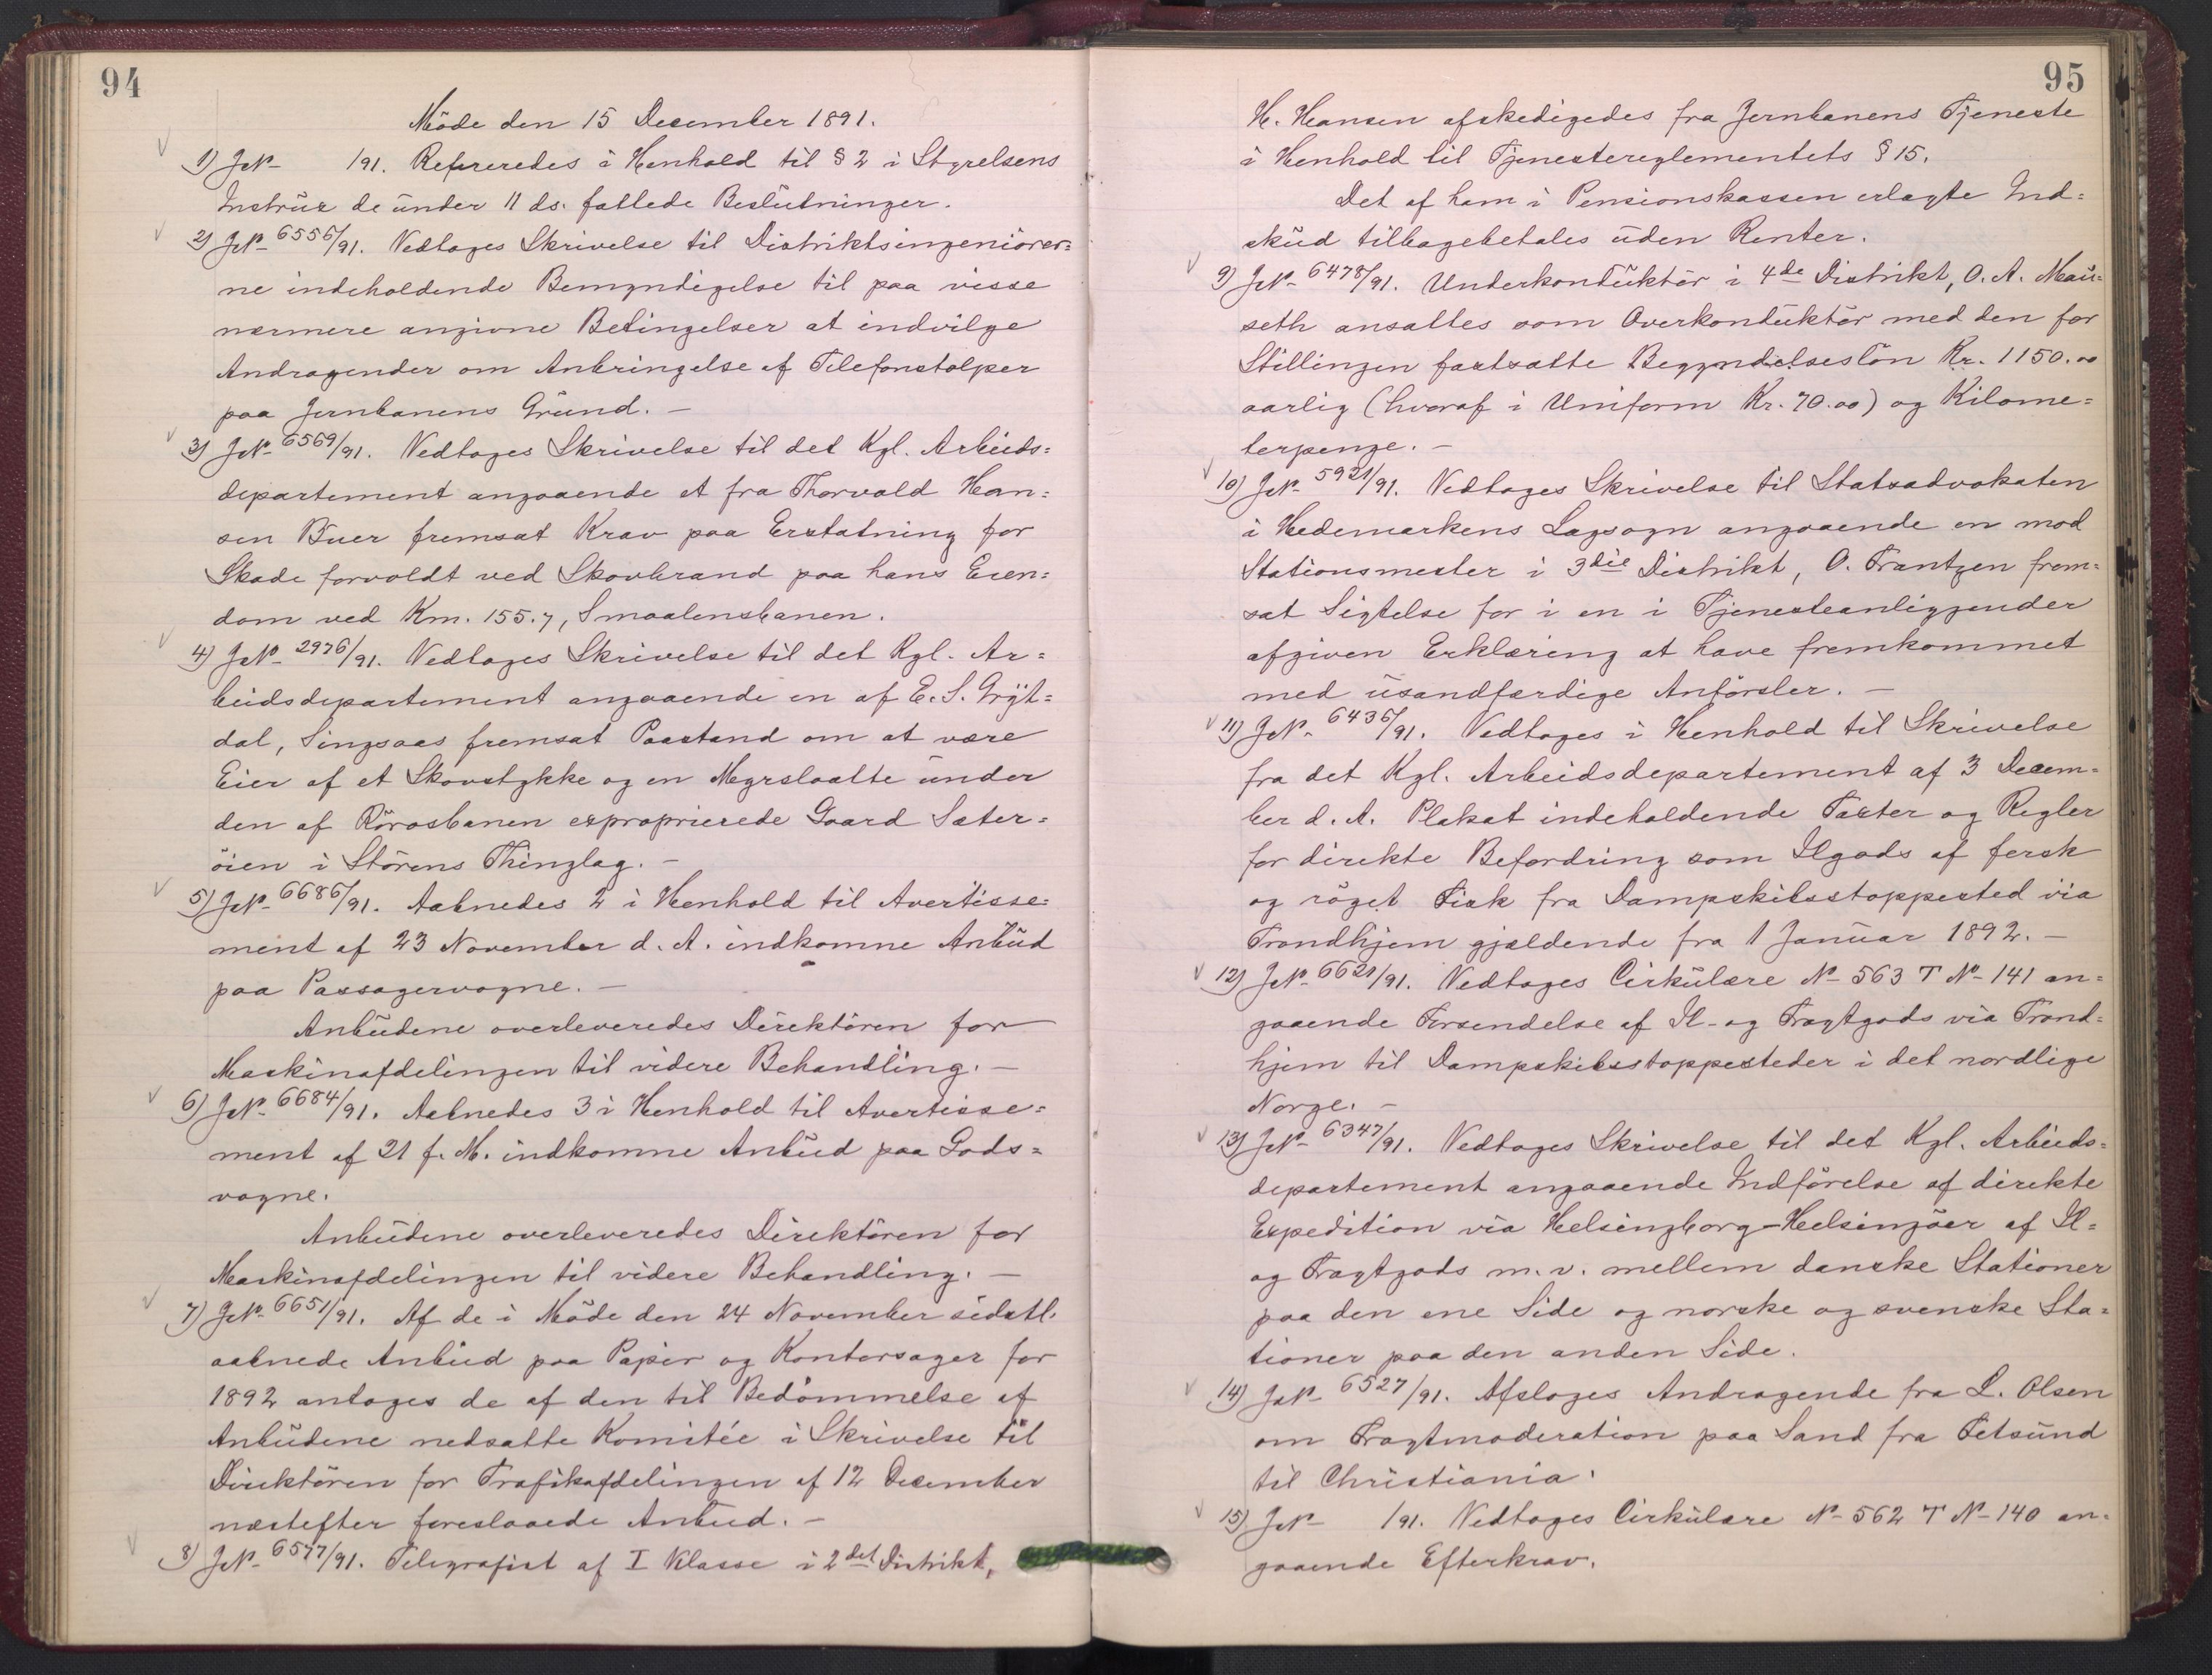 94
Möde den 15 December 1891.
1) JNo /91. Refereredes i Henhold til § 2 i Styrelsens
Instrux de under 11 ds. fattede Beslutninger.
2) JNo 6556/91. Vedtoges Skrivelse til Distriktsingeniörer=
ne indeholdende Bemyndigelse til paa visse
nærmere angivne Betingelser at indvilge
Andragender om Anbringelse af Telefonstolper
paa Jernbanens Grund. –
3) JNo 6569/91. Vedtoges Skrivelse til det Kgl. Arbeids=
departement angaaende et fra Thorvald Han=
sen Buer fremsat Krav paa Erstatning for
Skade forvoldt ved Skovbrand paa hans Eien=
dom ved Km. 155.7, Smaalensbanen.
4) JNo 2976/91. Vedtoges Skrivelse til det Kgl. Ar=
beidsdepartement angaaende en af E. S. Gryt=
dal, Singsaas fremsat Paastand om at være
Eier af et Skovstykke og en Myrslaatte under
den af Rörosbanen exproprierede Gaard Sæter=
öien i Störens Thinglag. –
5) JNo 6686/91. Aabnedes 2 i Henhold til Avertisse=
ment af 23 November d. A. indkomne Anbud
paa Passagervogne. –
Anbudene overleveredes Direktören for
Maskinafdelingen til videre Behandling. –
6) JNo 6684/91. Aabnedes 3 i Henhold til Avertisse=
ment af 21 f. M. indkomne Anbud paa Gods=
vogne.
Anbudene overleveredes Direktören for
Maskinafdelingen til videre Behandling. –
7) JNo 6651/91. Af de i Möde den 24 November sidstl.
aabnede Anbud paa Papir og Kontorsager for
1892 antoges de af den til Bedömmelse af
Anbudene nedsatte Komitée i Skrivelse til
Direktören for Trafikafdelingen af 12 December
næstefter foreslaaede Anbud. –
8) JNo 6577/91. Telegrafist af I Klasse i 2det Distrikt,
95
H. Hansen afskedigedes fra Jernbanens Tjeneste
i Henhold til Tjenestereglementets § 15.
Det af ham i Pensionskassen erlagte Ind=
skud tilbagebetales uden Renter.
9) JNo 6478/91. Underkonduktör i 4de Distrikt, O. A. Mau=
seth ansattes som Overkonduktör med den for
Stillingen fastsatte Begyndelseslön Kr. 1150.00
aarlig (hvoraf i Uniform Kr. 70.00) og Kilome=
terpenge. –
10) JNo 5921/91. Vedtoges Skrivelse til Statsadvokaten
i Hedemarkens Lagsogn angaaende en mod
Stationsmester i 3die Distrikt, O. Frantzen frem=
sat Sigtelse for i en i Tjenesteanliggender
afgiven Erklæring at have fremkommet
med usandfærdige Anförsler. –
11) JNo 6436/91. Vedtoges i Henhold til Skrivelse
fra det Kgl. Arbeidsdepartement af 3 Decem=
ber d. A. Plakat indeholdende Taxter og Regler
for direkte Befordring som Ilgods af fersk
og röget Fisk fra Dampskibsstoppested via
Trondhjem gjældende fra 1 Januar 1892. –
12) JNo 6621/91. Vedtoges Cirkulære No 563 T No 141 an=
gaaende Forsendelse af Il- og Fragtgods via Trond=
hjem til Dampskibsstoppesteder i det nordlige
Norge. –
13) JNo 6347/91. Vedtoges Skrivelse til det Kgl. Arbeids=
departement angaaende Indförelse af direkte
Expedition via Helsingborg-Helsingöer af Il=
og Fragtgods m. v. mellem danske Stationer
paa den ene Side og norske og svenske Sta=
tioner paa den anden Side.
14) JNo 6527/91. Afsloges Andragende fra L. Olsen
om Fragtmoderation paa Sand fra Fetsund
til Christiania.
15) JNo /91. Vedtoges Cirkulære No 562 T No 140 an=
gaaende Efterkrav.